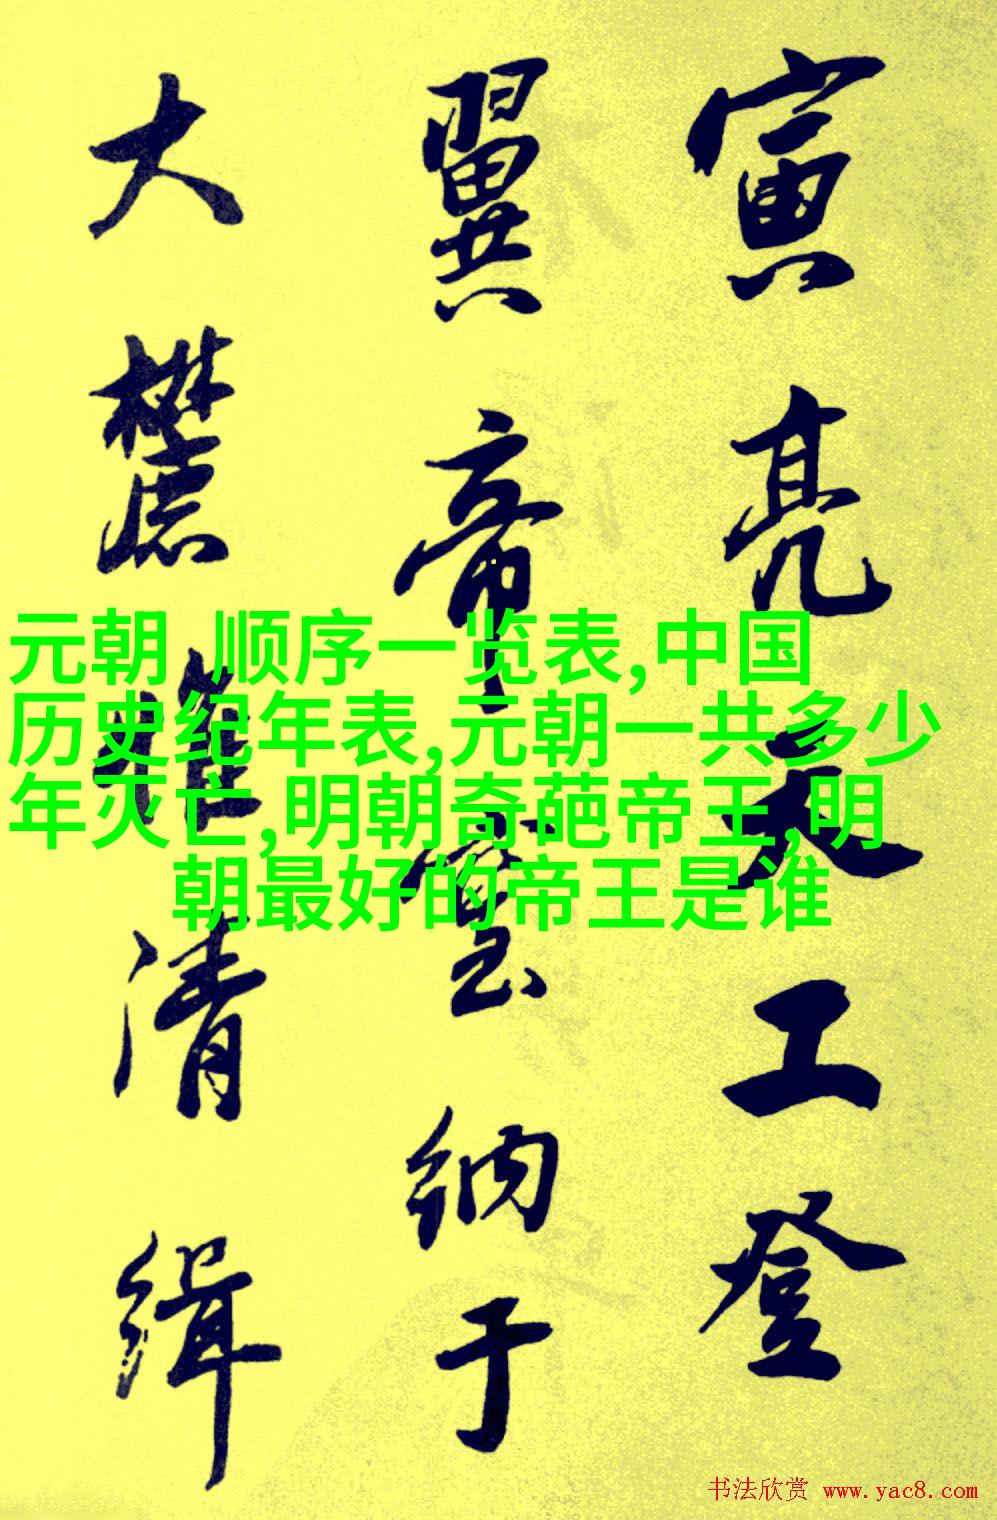 寅亮天工登
翼帝室纳于
大麓惟清缉
元朝 顺序一览表,中国
历史纪年表,元朝一共多少
年灭亡,明朝奇葩帝王,明
朝最好的帝王是谁
书法欣赏 www.yac8.com